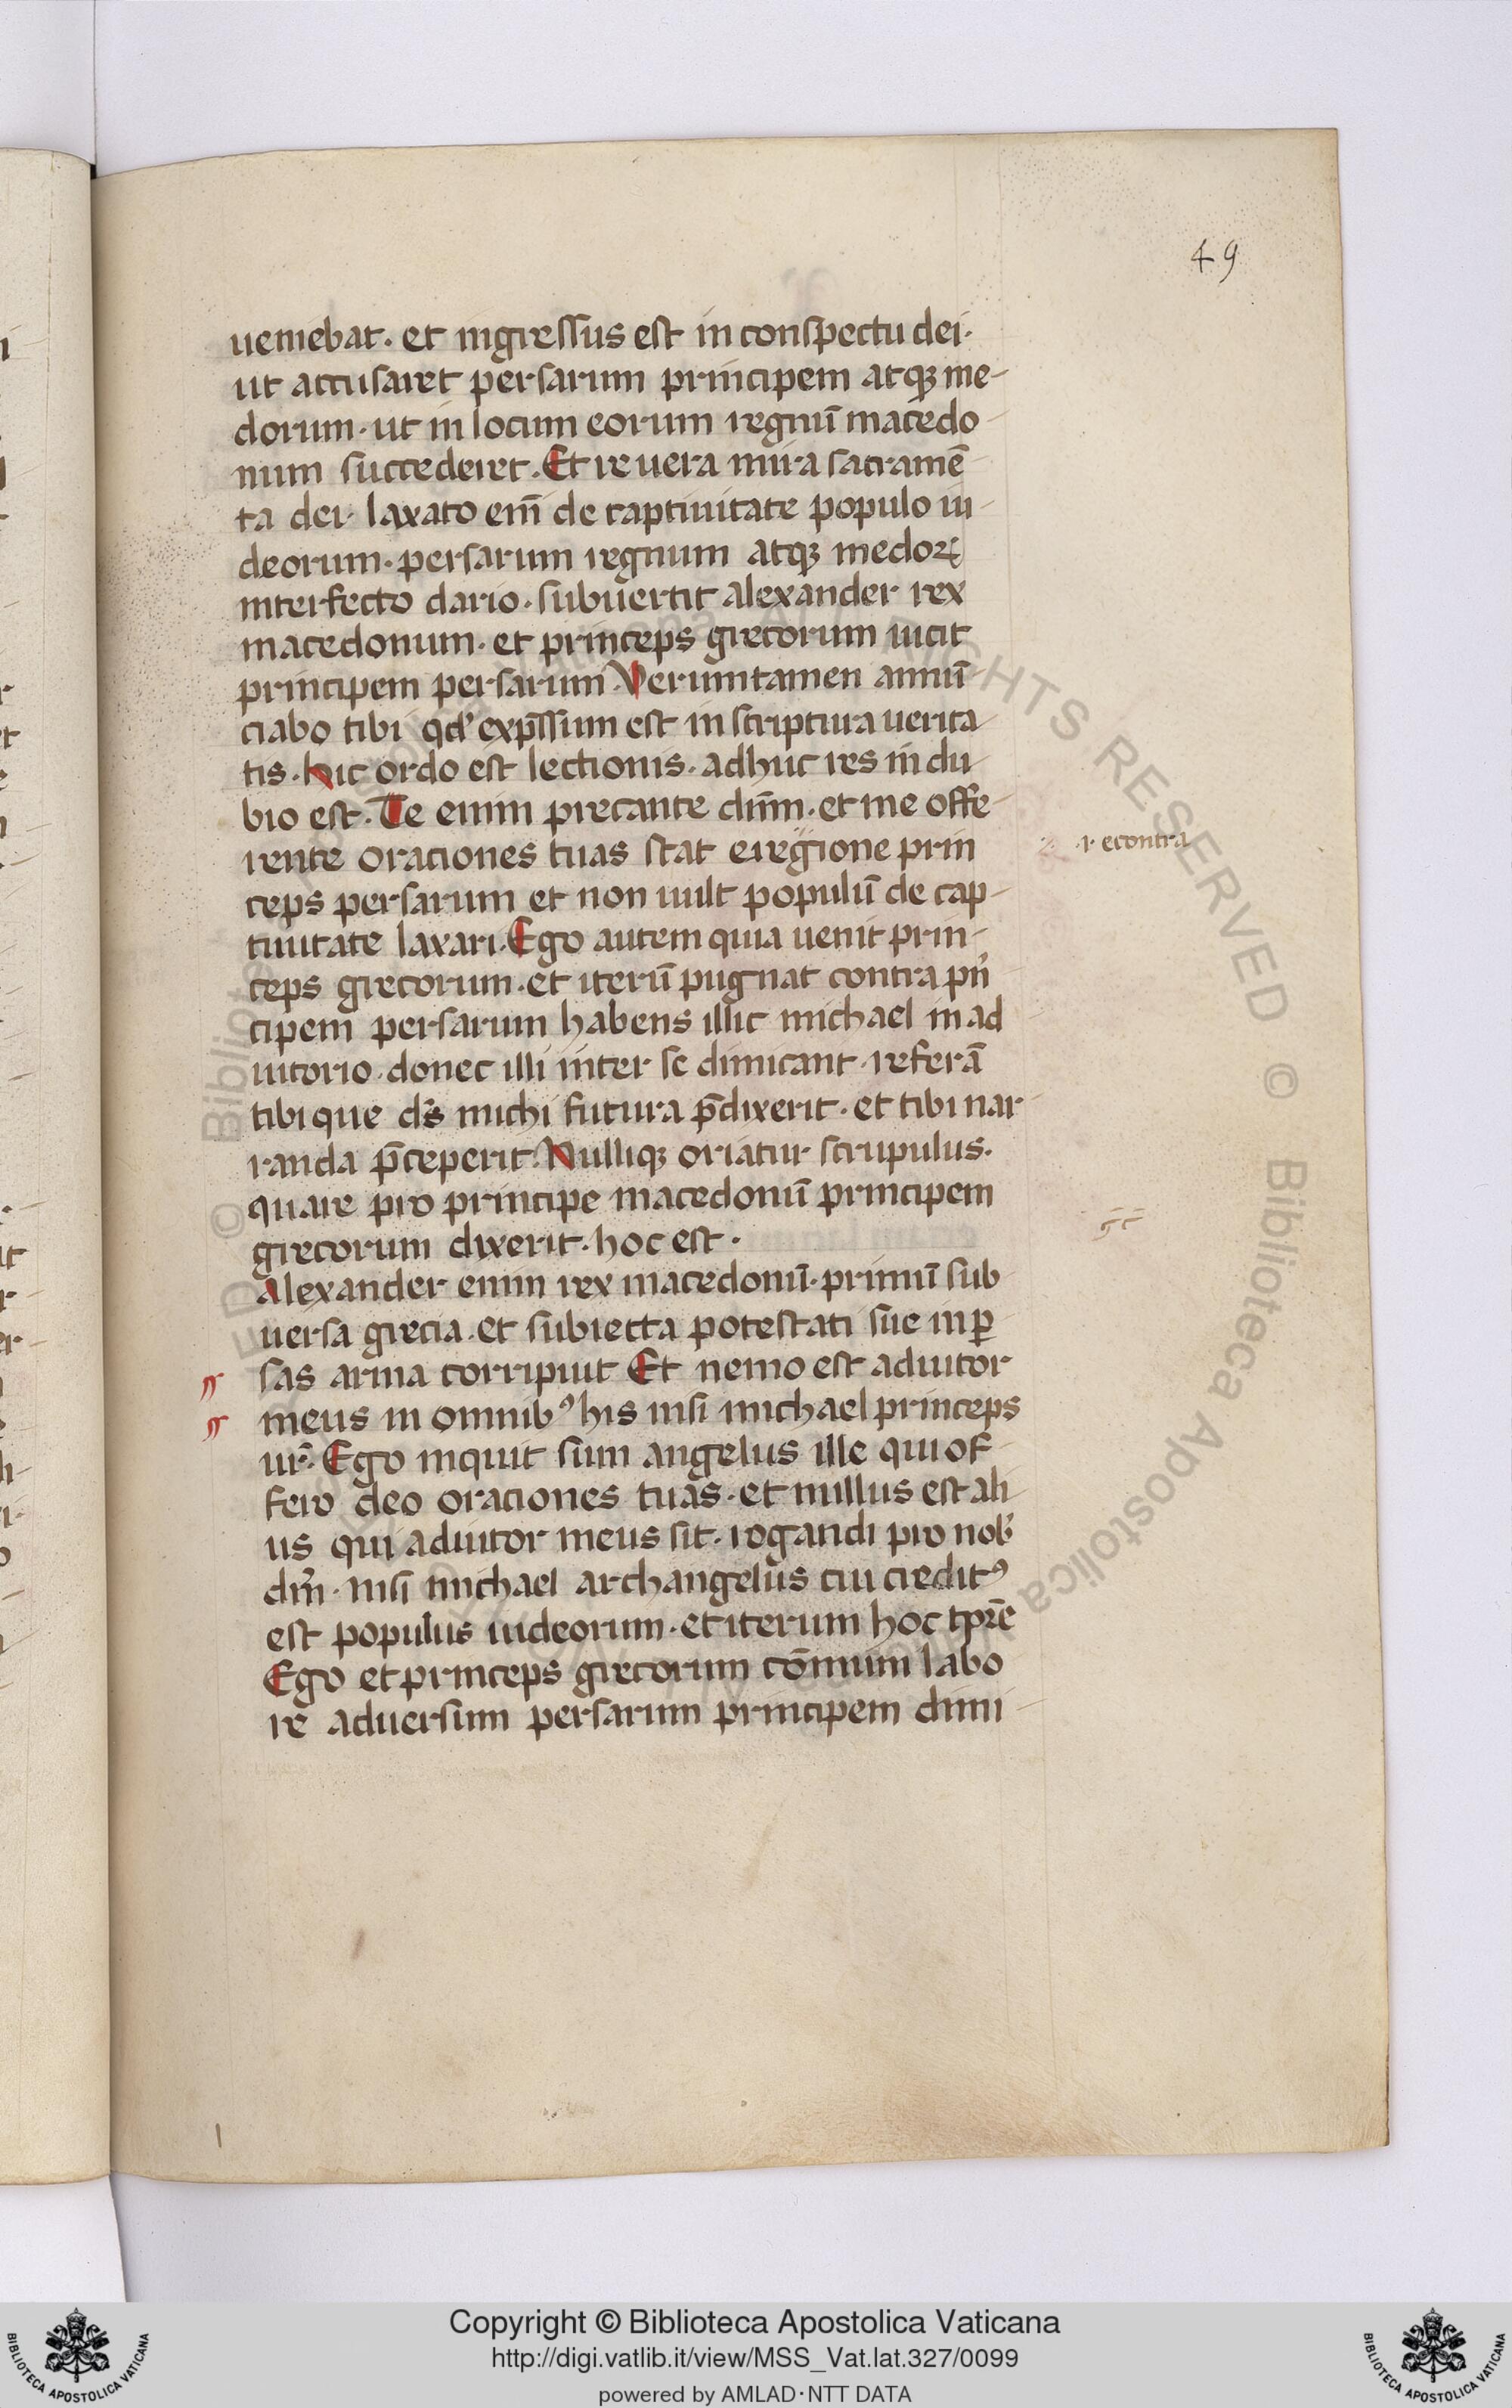 49
ueniebat. et ingressus est in conspectu dei.
ut accusaret persarum principem atqꝫ me-
dorum. ut in locum eorum regnū macedo
num succederet. Et re uera mira sacramē
ta dei. laxato em̄ de captiuitate populo iu
deorum. persarum regnum atqꝫ medoꝝ
interfecto dario. subuertit alexander rex
macedonum. et princeps grecorum uicit
principem persarum. Verumtamen annū
ciabo tibi qd' exp̄ssum est in scriptura uerita
tis. hic ordo est lectionis. adhuc res in du
bio est. Te enim precante dn̄m. et me offe
rente orationes tuas stat e regione prin
ceps persarum et non uult populū de cap
tiuitate laxari. Ego autem quia uenit prin
ceps grecorum. et iterū pugnat contra prī
cipem persarum habens illic michael in ad
iutorio. donec illi inter se dimicant. referā
tibi que ds̄ michi futura p̄dixerit. et tibi nar
randa p̄ceperit. Nulliqꝫ oriatur scrupulus.
quare pro principe macedonū principem
grecorum dixerit. hoc est.
Alexander enim rex macedonū. primū sub
uersa grecia. et subiecta potestati sue in ꝑ
sas arma corripuit Et nemo est adiutor
meus in omnibꝰ his nisi michael princeps
ur̄. Ego inquit sum angelus ille qui of
fero deo orationes tuas. et nullus est ali
us qui adiutor meus sit. rogandi pro nob'
dm̄. nisi michael archangelus cui creditꝰ
est populus iudeorum. et iterum hoc tp̄re
Ego et princeps grecorum cōmuni labo
re aduersum persarum principem dimi
.i. econtra
Copyright © Biblioteca Apostolica Vaticana
http://digi.vatlib.it/view/MSS_Vat.lat.327/0099
powered by AMLAD·NTT DATA